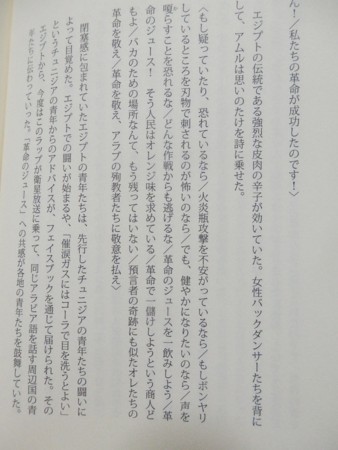 ん！／私たちの革命が成功したのです！〉
エジプトの伝統である強烈な皮肉の辛子が効いていた。女性バックダンサーたちを背に
して、アムルは思いのたけを詩に乗せた。
〈もし疑っていたり、恐れているなら／火炎瓶攻撃を不安がっているなら／もしボンヤリ
しているところを刃物で刺されるのが怖いのなら／でも、健やかになりたいのなら／声を
嗄らすことを恐れるな／どんな作戦からも逃げるな／革命のジュースを一飲みしよう／革
命のジュース！　そう人民はオレンジ味を求めている／革命で一儲けしようという商人ど
もよ／バカのための場所なんて、もう残ってはいない／預言者の奇跡にも似たオレたちの
革命を敬え／革命を敬え、アラブの殉教者たちに敬意を払え〉
閉塞感に包まれていたエジプトの青年たちは、先行したチュニジアの青年たちの闘いに
よって目覚めた。エジプトでの闘いが始まるや、「催涙ガスにはコーラで目を洗うとよい」
というチュニジアの青年からのアドバイスが、フェイスブックを通じて届けられた。その
エジプトから、今度はこのラップが衛星放送に乗って、同じアラビア語を話す周辺国の青
年たちに伝わっていった。「革命のジュース」への共感が各地の青年たちを鼓舞していた。